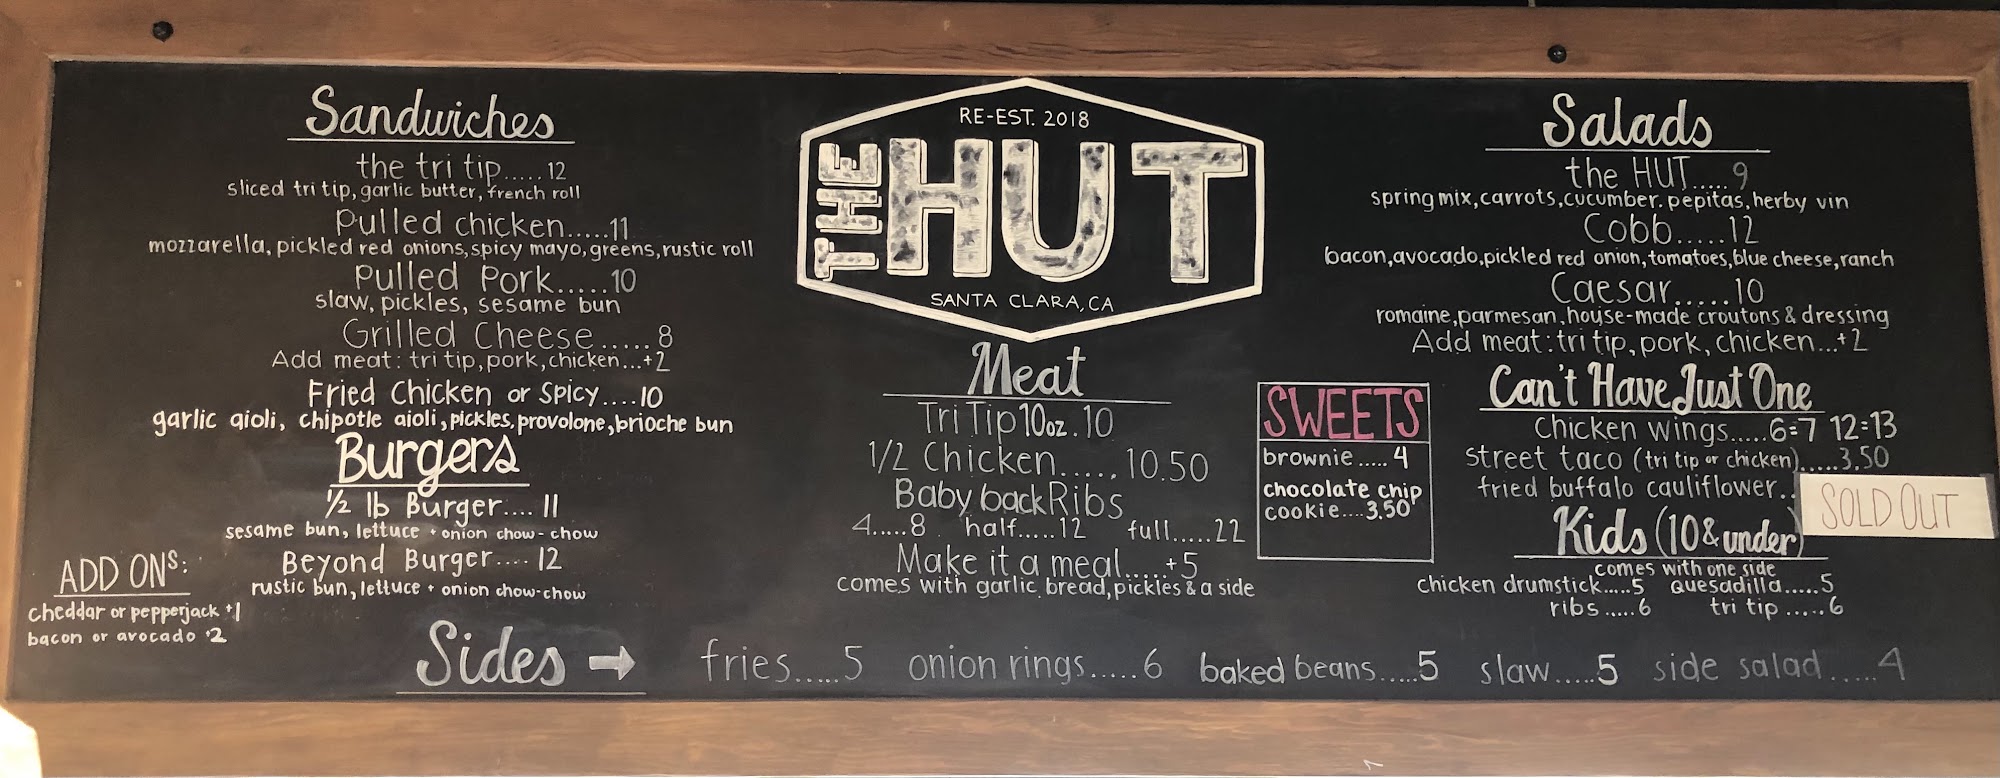 Sandwiches
the tri tip.....12
sliced tri tip, garlic butter, french roll
pulled chicken.....11
mozzarella, pickled red onions, spicy mayo, greens, rustic roll
pulled pork.....10
slaw, pickles, sesame bun
Grilled Cheese.....8
Add meat: tri tip, pork, chicken...+2
Fried Chicken or Spicy....10
garlic aioli, chipotle aioli, pickles, provolone, brioche bun
Burgers
1/2 lb Burger.... 11
sesame bun, lettuce + onion chow-chow
Beyond Burger.... 12
rustic bun, lettuce + onion chow-chow
ADD ONS:
cheddar or pepperjack +1
bacon or avocado +2
RE-EST. 2018
THE HUT
SANTA CLARA, CA
Meat
Tri Tip 10oz. 10
1/2 Chicken..... 10.50
Baby back Ribs
4.....8 half.....12 full.....22
Make it a meal.....+5
comes with garlic bread, pickles & a side
SWEETS
brownie.....4
chocolate chip
cookie....3.50
Salads
the HUT.....9
spring mix, carrots, cucumber. pepitas, herby vin
Cobb.....12
bacon, avocado, pickled red onion, tomatoes, blue cheese, ranch
Caesar.....10
romaine, parmesan, house-made croutons & dressing
Add meat: tri tip, pork, chicken...+2
Can't Have Just One
chicken wings.....6=7 12=13
street taco (tri tip or chicken).....3.50
fried buffalo cauliflower..
SOLD OUT
Kids (10 & under)
comes with one side
chicken drumstick.....5 quesadilla.....5
ribs.....6 tri tip.....6
Sides → fries.....5 onion rings.....6 baked beans.....5 slaw.....5 side salad.....4